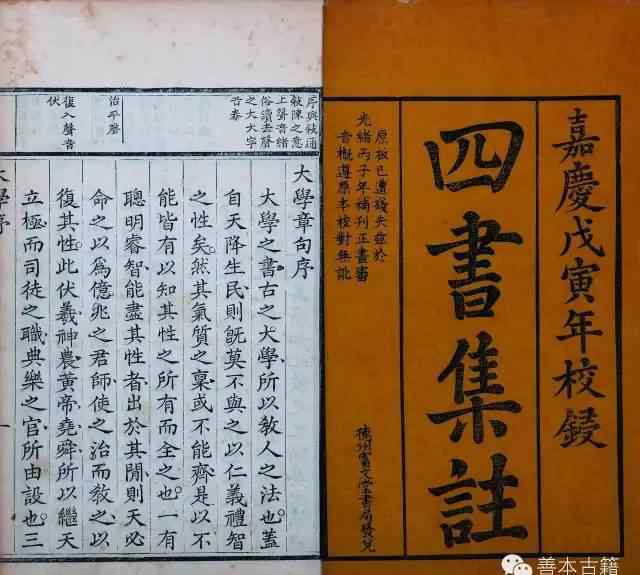 嘉慶戊寅年校鋟
四書集註
原板已遭殘失茲於
光緒丙子年補刊正畫審
音概遵原本校對無訛
德州寶文堂書局發兌
序與敘通
敘陳之意
上聲音緒
俗讀去聲
之大大字
音泰
治平聲
復入聲音
伏
大學章句序
大學之書古之大學所以敎人之法也蓋
自天降生民則旣莫不與之以仁義禮智
之性矣然其氣質之稟或不能齊是以不
能皆有以知其性之所有而全之也一有
聰明睿智能盡其性者出於其閒則天必
命之以爲億兆之君師使之治而敎之以
復其性此伏羲神農黃帝堯舜所以繼天
立極而司徒之職典樂之官所由設也三
大學序
一
善本古籍